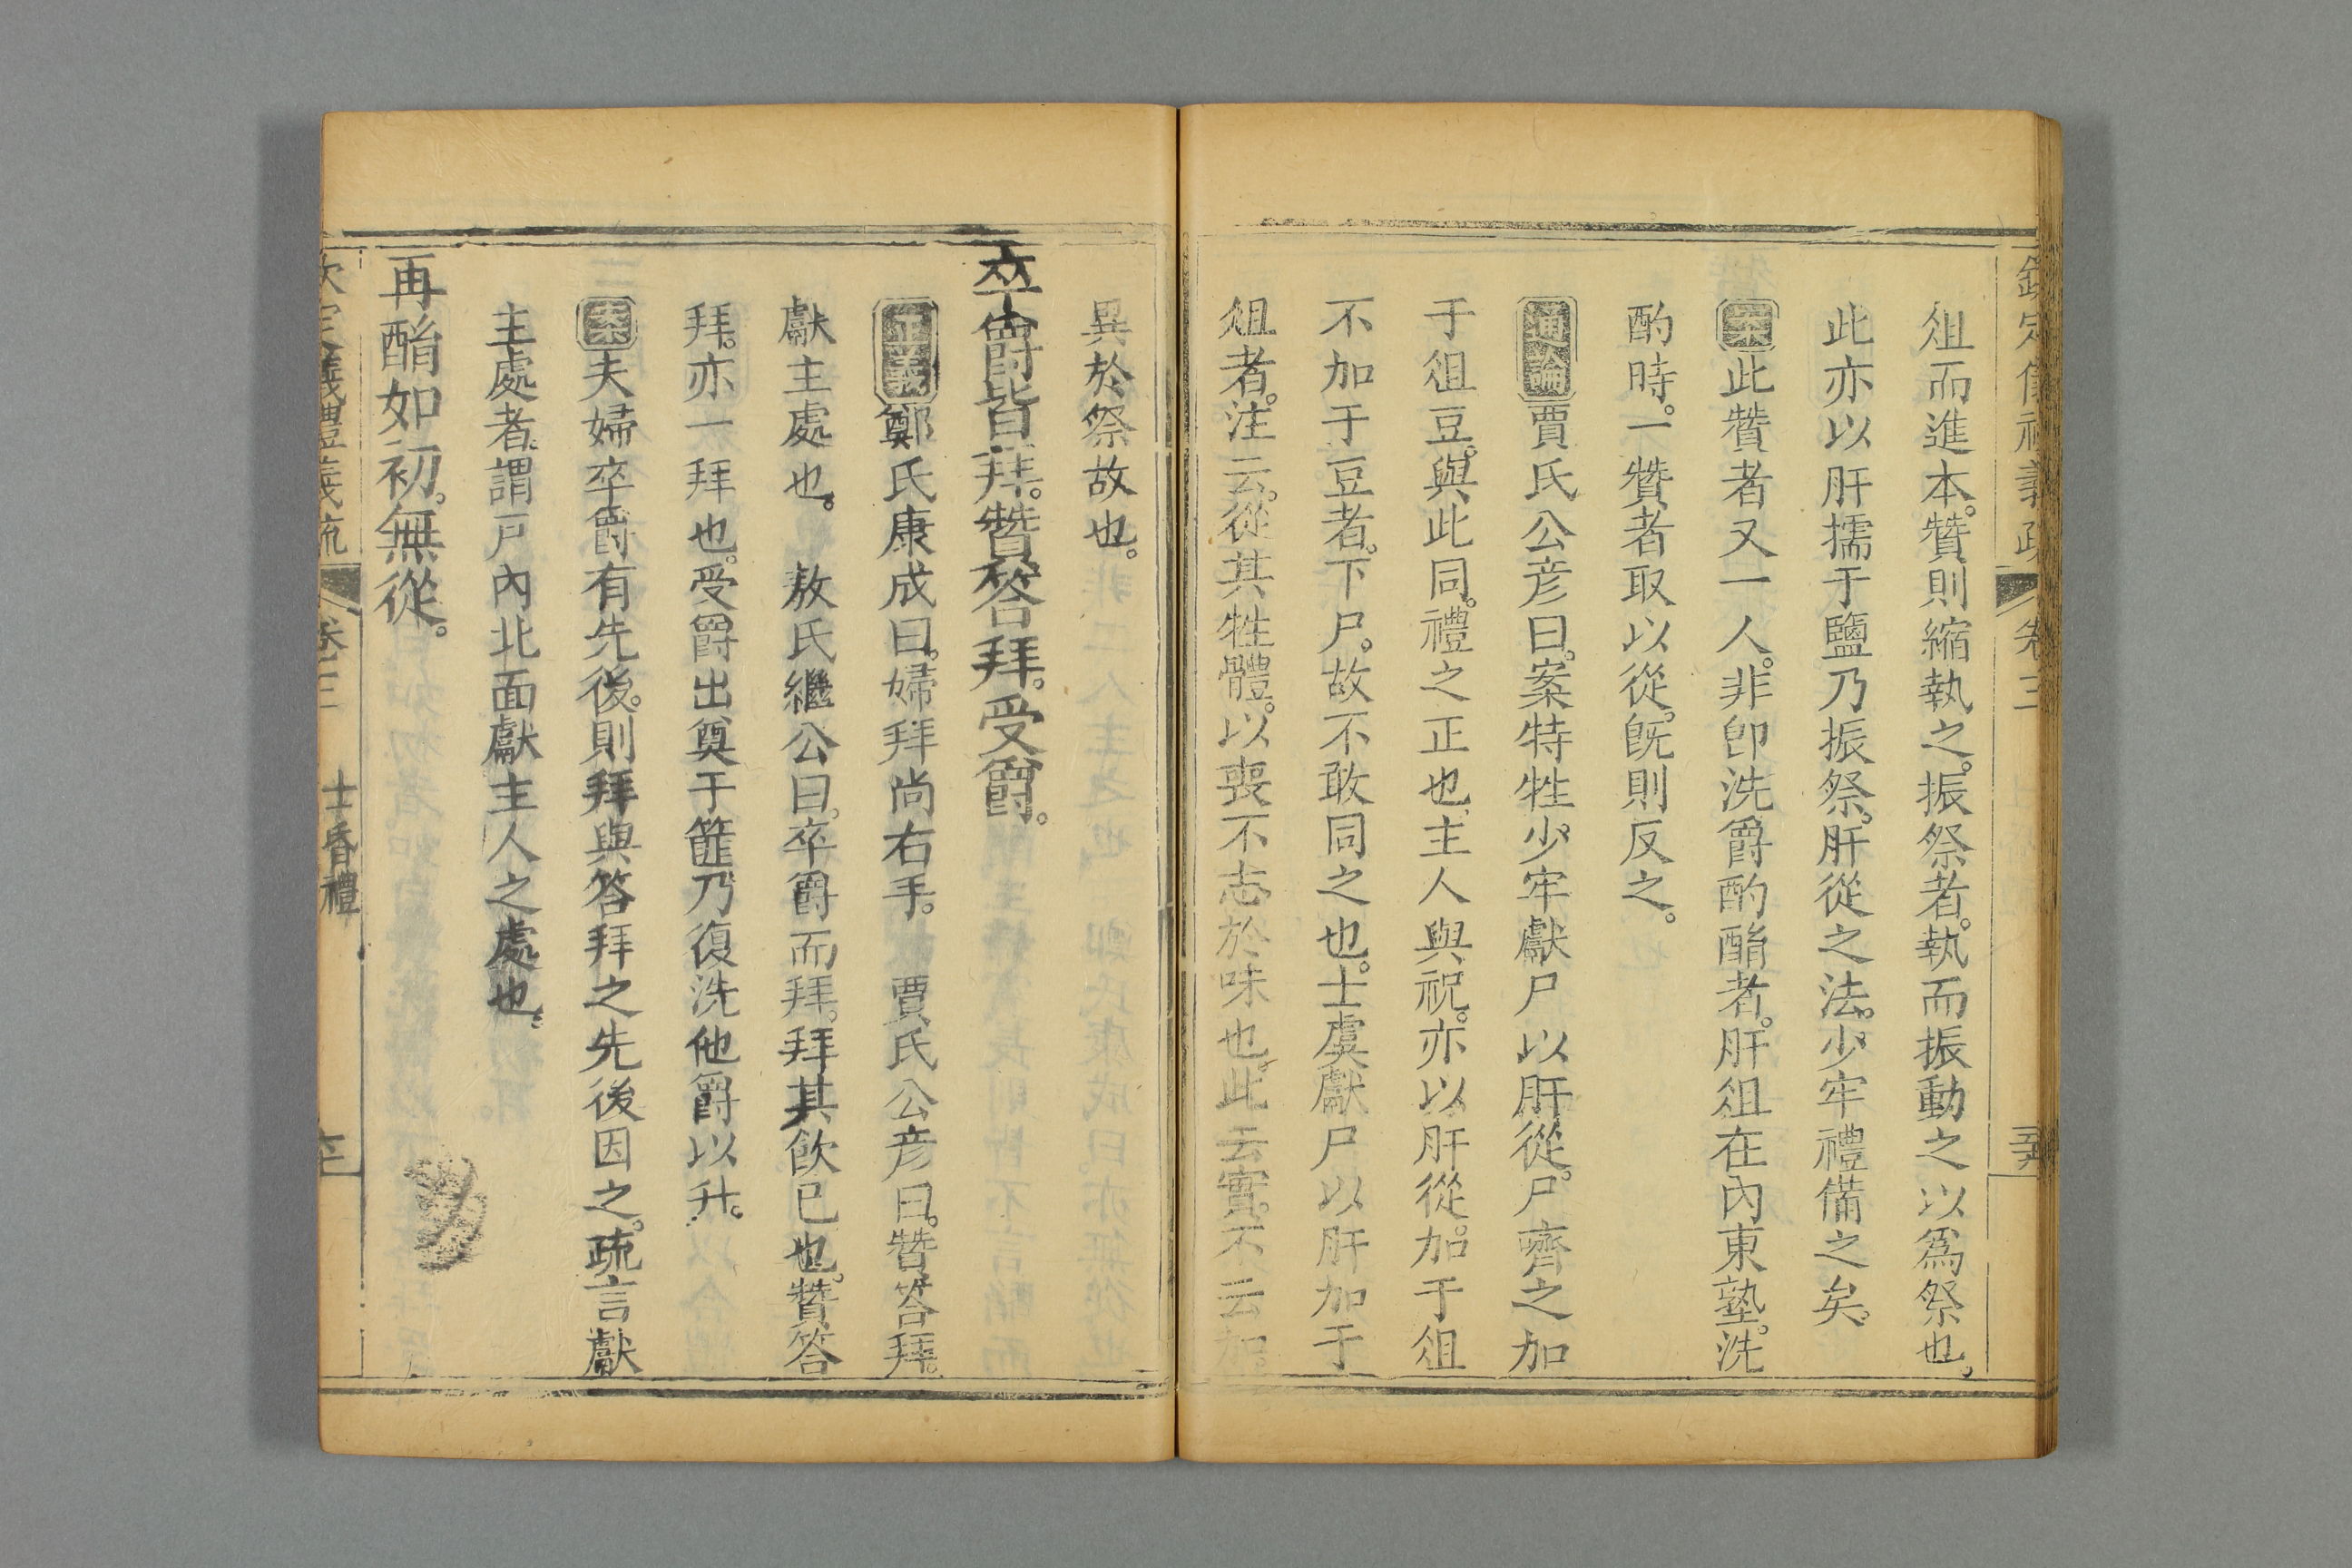 欽定儀禮義疏 卷三
俎而進本。贊則縮執之。振祭者。執而振動之以爲祭也。
此亦以肝擩于鹽乃振祭。肝從之法。少牢禮備之矣。
案此贊者又一人。非卽洗爵酌酳者。肝俎在內東塾。洗
酌時。一贊者取以從。旣則反之。
通論賈氏公彦曰。案特牲。少牢獻尸以肝從。尸嚌之加
于俎豆。與此同。禮之正也。主人與祝。亦以肝從。加于俎
不加于豆者。下尸。故不敢同之也。士虞獻尸以肝加于
俎者。注云。從其牲體。以喪不志於味也。此云實。不云加。
異於祭故也。
卒爵皆拜。贊答拜。受爵。
正義鄭氏康成曰。婦拜尚右手。 賈氏公彦曰。贊答拜。
獻主處也。 敖氏繼公曰。卒爵而拜。拜其飲已也。贊答
拜。亦一拜也。受爵出奠于篚乃復洗他爵以升。
案夫婦卒爵有先後。則拜與答拜之先後因之。疏言獻
主處者。謂戸內北面獻主人之處也。
再酳如初。無從。
欽定儀禮義疏 卷三 士昏禮